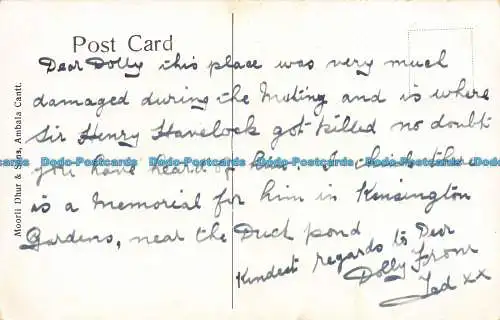 Post Card
Dear Dolly this place was very much
damaged during the Muting and is where
Sir Henry Havelock got killed no doubt
you have heard of him. I think there
is a Memorial for him in Kensington
Gardens, near the Duct pond
Kindest regards to Dear
Dolly From
Ted xx
Moorli Dhur & Sons, Ambala Cantt.
Dodo-Postcards Dodo-Postcards Dodo-Postcards Dodo-Postcards